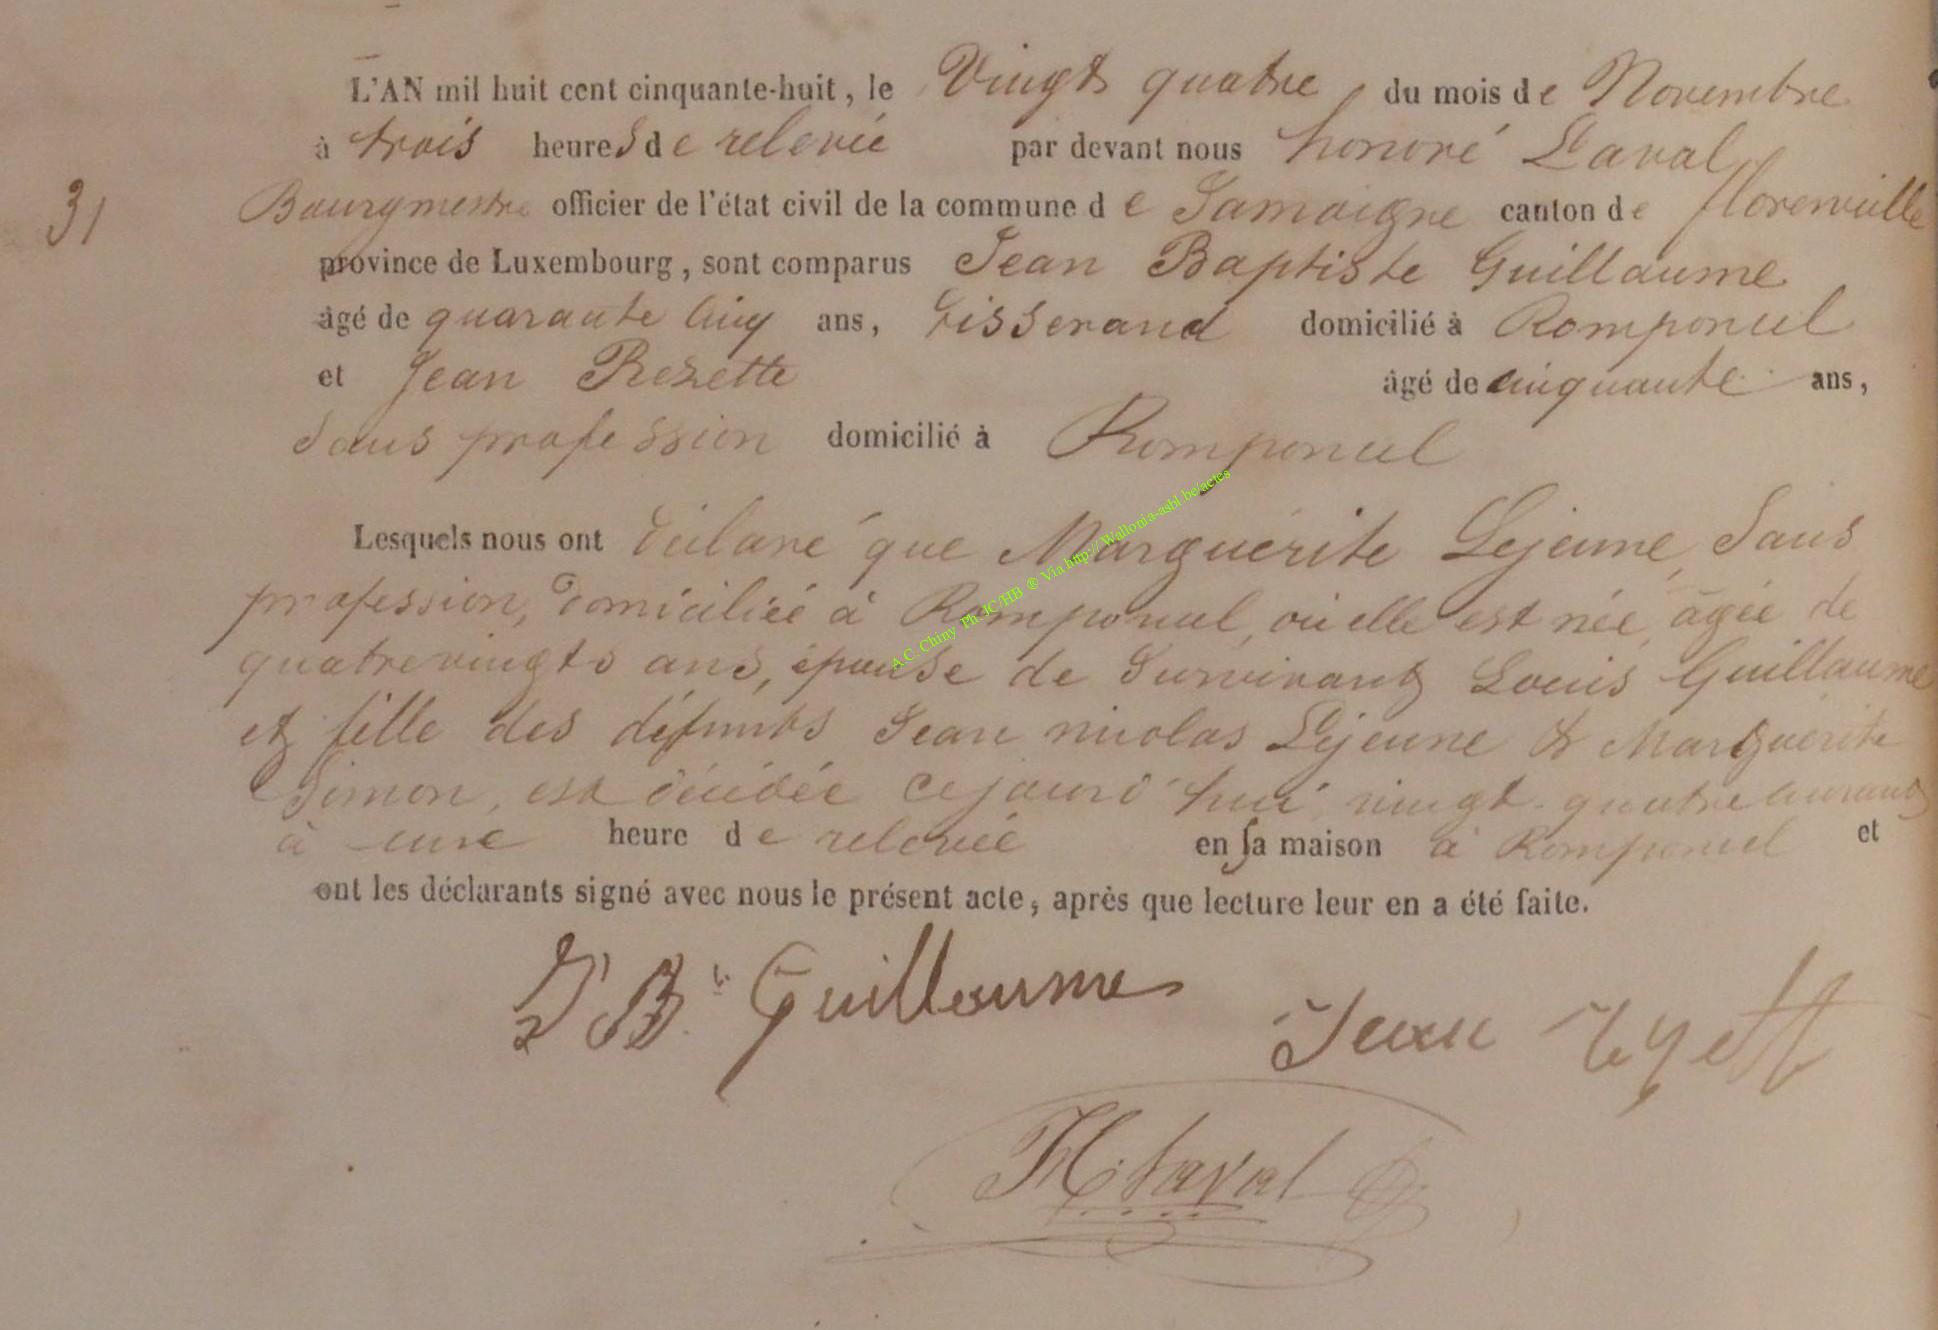 L'AN mil huit cent cinquante-huit, le Vingt quatre du mois de Novembre
à trois heures de relevée par devant nous honoré Laval
Bourgmestre officier de l'état civil de la commune de Jamoigne canton de florenville
31
province de Luxembourg, sont comparus Jean Baptiste Guillaume
âgé de quarante cinq ans, tisserand domicilié à Romponcel
et Jean Rezette âgé de cinquante ans,
Sans profession domicilié à Romponcel
Lesquels nous ont déclaré que Marguerite Lejeune, Sans
profession, domiciliée à Romponcel, où elle est née âgée de
quatrevingts ans, épouse de Survivant Louis Guillaume
et fille des défunts Jean nicolas Lejeune & Marguerite
Simon, est décédée cejourd'hui vingt-quatre courant
à une heure de relevée en sa maison à Romponcel et
ont les déclarants signé avec nous le présent acte, après que lecture leur en a été faite.
J Bte Guillaume
Jean
H. Laval
A.C. Chiny Ph. JC/HB ® Via http://Wallonia-asbl.be/actes